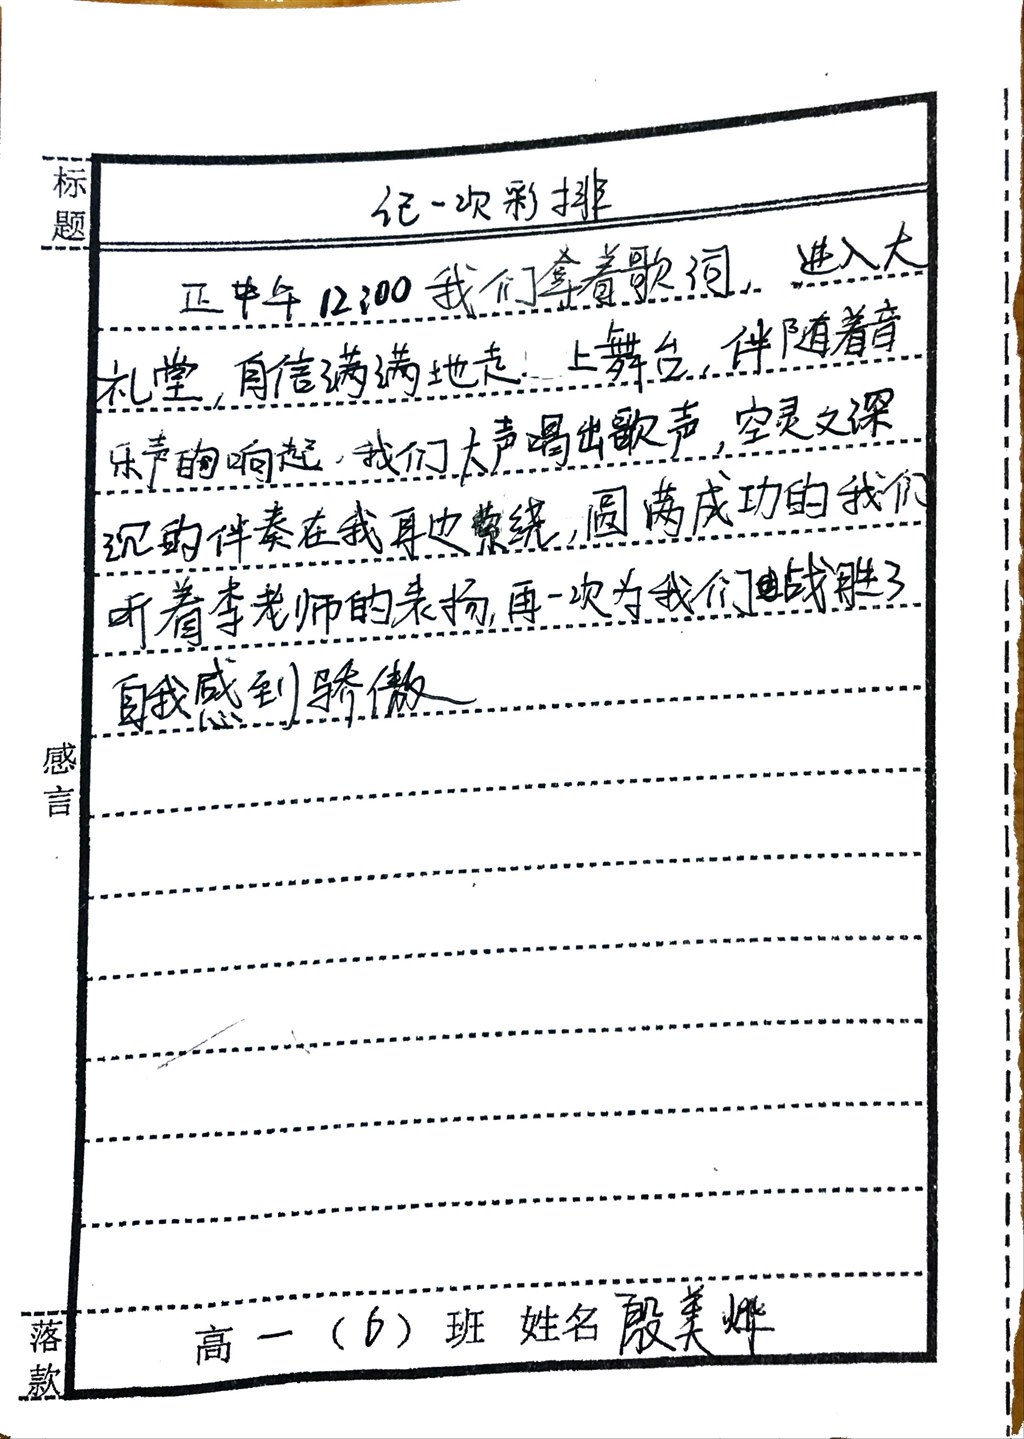 标题
记一次彩排
正中午12:00我们拿着歌词，进入大
礼堂，自信满满地走上舞台，伴随着音
乐声的响起，我们大声唱出歌声，空灵又深
沉的伴奏在我耳边萦绕，圆满成功的我们
听着李老师的表扬，再一次为我们战胜了
自我感到骄傲
感言
落款
高一（6）班 姓名 殷美烨